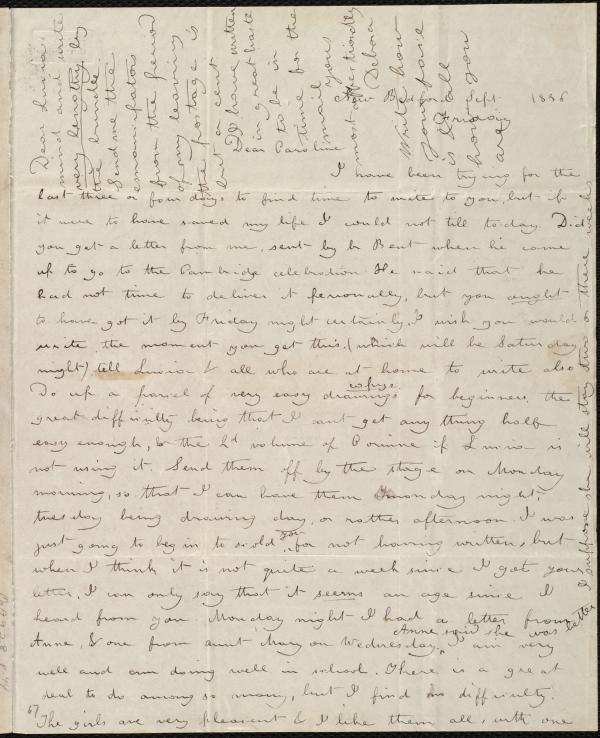 New Bedford, Sept. 1836
Friday
Dear Caroline
I have been trying for the
last three or four days to find time to write to you, but if
it were to have saved my life I could not till to-day. Did
you get a letter from me, sent by br Bent when he came
up to go to the Cambridge celebration. He said that he
had not time to deliver it personally, but you ought
to have got it by Friday night certainly. I wish you would
write the moment you get this, (which will be Saturday
night) tell Lucia & all who are at home to write also
Do up a parcel of very easy drawings copys for beginners, the
great difficulty being that I cant get any thing half
easy enough, & the 2d volume of Corinne if Lucia is
not using it. Send them off by the stage on Monday
morning, so that I can have them Monday night,
tuesday being drawing day, or rather afternoon. I was
just going to begin to scold you, for not having written, but
when I think it is not quite a week since I got your
letter, I can only say that it seems an age since I
heard from you Monday night I had a letter from
Anne, & one from aunt Mary on Wednesday. Anne said she was better
I suppose she will stay two or three weeks
I am very
well and am doing well in school. There is a great
deal to do among so many, but I find no difficulty.
The girls are very pleasant & I like them all, with one
67
Dear Lucia
mind and write
very lengthy by
the bundle
Send me the
emancipators
from the period
of my leaving
the postage is
but a cent
I have written
in great haste
to be in
time for the
mail
yours
most affectionately
Debora
Write how
your face
is & all
how you
are